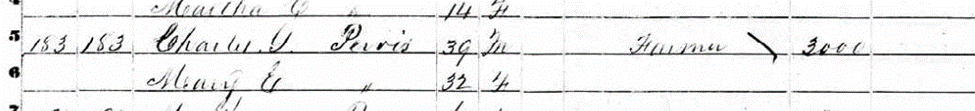 Martha E " 14 F
5 183 183 Charles G. Pervis 39 M Farmer \ 3000
6 Mary E " 32 F
7